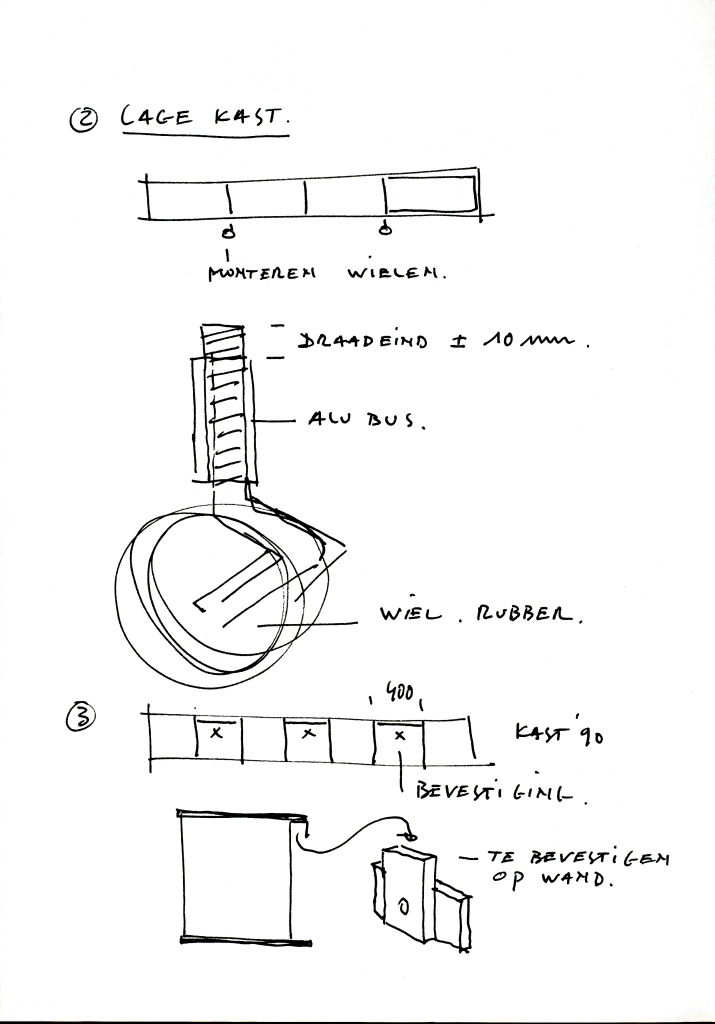 ② LAGE KAST.
MONTEREN WIELEN.
DRAADEIND ± 10 mm.
ALU BUS.
WIEL. RUBBER.
③
400
x x x
KAST '90
BEVESTIGING.
TE BEVESTIGEN
OP WAND.